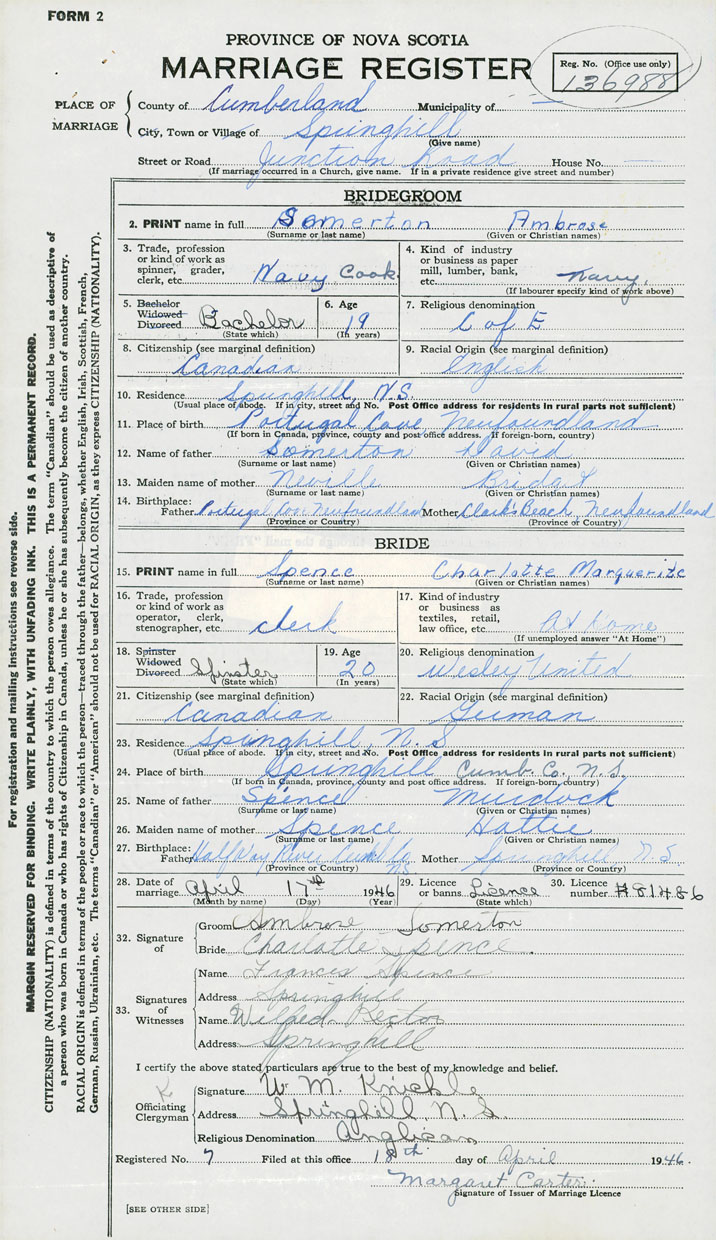 FORM 2
PROVINCE OF NOVA SCOTIA
MARRIAGE REGISTER
Reg. No. (Office use only)
136988
PLACE OF MARRIAGE
County of Cumberland Municipality of —
City, Town or Village of Springhill
(Give name)
Street or Road Junction Road House No. —
(If marriage occurred in a Church, give name. If in a private residence give street and number)
BRIDEGROOM
2. PRINT name in full Somerton Ambrose
(Surname or last name) (Given or Christian names)
3. Trade, profession or kind of work as spinner, grader, clerk, etc. Navy Cook
4. Kind of industry or business as paper mill, lumber, bank, etc. Navy
(If labourer specify kind of work above)
5. Bachelor Widowed Divorced Bachelor
(State which)
6. Age 19
(In years)
7. Religious denomination C of E
8. Citizenship (see marginal definition) Canadian
9. Racial Origin (see marginal definition) English
10. Residence Springhill, N.S.
(Usual place of abode. If in city, street and No. Post Office address for residents in rural parts not sufficient)
11. Place of birth Portugal Cove Newfoundland
(If born in Canada, province, county and post office address. If foreign-born, country)
12. Name of father Somerton David
(Surname or last name) (Given or Christian names)
13. Maiden name of mother Neville Bridat
(Surname or last name) (Given or Christian names)
14. Birthplace: Father Portugal Cove Newfoundland Mother Clark's Beach, Newfoundland
(Province or Country) (Province or Country)
BRIDE
15. PRINT name in full Spence Charlotte Marguerite
(Surname or last name) (Given or Christian names)
16. Trade, profession or kind of work as operator, clerk, stenographer, etc. clerk
17. Kind of industry or business as textiles, retail, law office, etc. At Home
(If unemployed answer "At Home")
18. Spinster Widowed Divorced Spinster
(State which)
19. Age 20
(In years)
20. Religious denomination Wesley United
21. Citizenship (see marginal definition) Canadian
22. Racial Origin (see marginal definition) German
23. Residence Springhill, N.S
(Usual place of abode. If in city, street and No. Post Office address for residents in rural parts not sufficient)
24. Place of birth Springhill Cumb. Co. N.S.
(If born in Canada, province, county and post office address. If foreign-born, country)
25. Name of father Spence Murdock
(Surname or last name) (Given or Christian names)
26. Maiden name of mother Spence Hattie
(Surname or last name) (Given or Christian names)
27. Birthplace: Father Half Way River Cumb Co NS Mother Springhill N.S.
(Province or Country) (Province or Country)
28. Date of marriage April 17th 1946
(Month by name) (Day) (Year)
29. Licence or banns Licence
(State which)
30. Licence number #81486
32. Signature of
Groom Ambrose Somerton
Bride Charlotte Spence.
33. Signatures of Witnesses
Name Frances Spence
Address Springhill
Name Wilfred Rector
Address Springhill
I certify the above stated particulars are true to the best of my knowledge and belief.
Officiating Clergyman
Signature W. M. Knickle
Address Springhill N. S.
Religious Denomination Anglican
Registered No. 7 Filed at this office 18th day of April 1946.
Margaret Carter
Signature of Issuer of Marriage Licence
[SEE OTHER SIDE]
For registration and mailing instructions see reverse side.
MARGIN RESERVED FOR BINDING. WRITE PLAINLY, WITH UNFADING INK. THIS IS A PERMANENT RECORD.
CITIZENSHIP (NATIONALITY) is defined in terms of the country to which the person owes allegiance. The term "Canadian" should be used as descriptive of
a person who was born in Canada or who has rights of Citizenship in Canada, unless he or she has subsequently become the citizen of another country.
RACIAL ORIGIN is defined in terms of the people or race to which the person—traced through the father—belongs, whether English, Irish, Scottish, French,
German, Russian, Ukrainian, etc. The terms "Canadian" or "American" should not be used for RACIAL ORIGIN, as they express CITIZENSHIP (NATIONALITY).